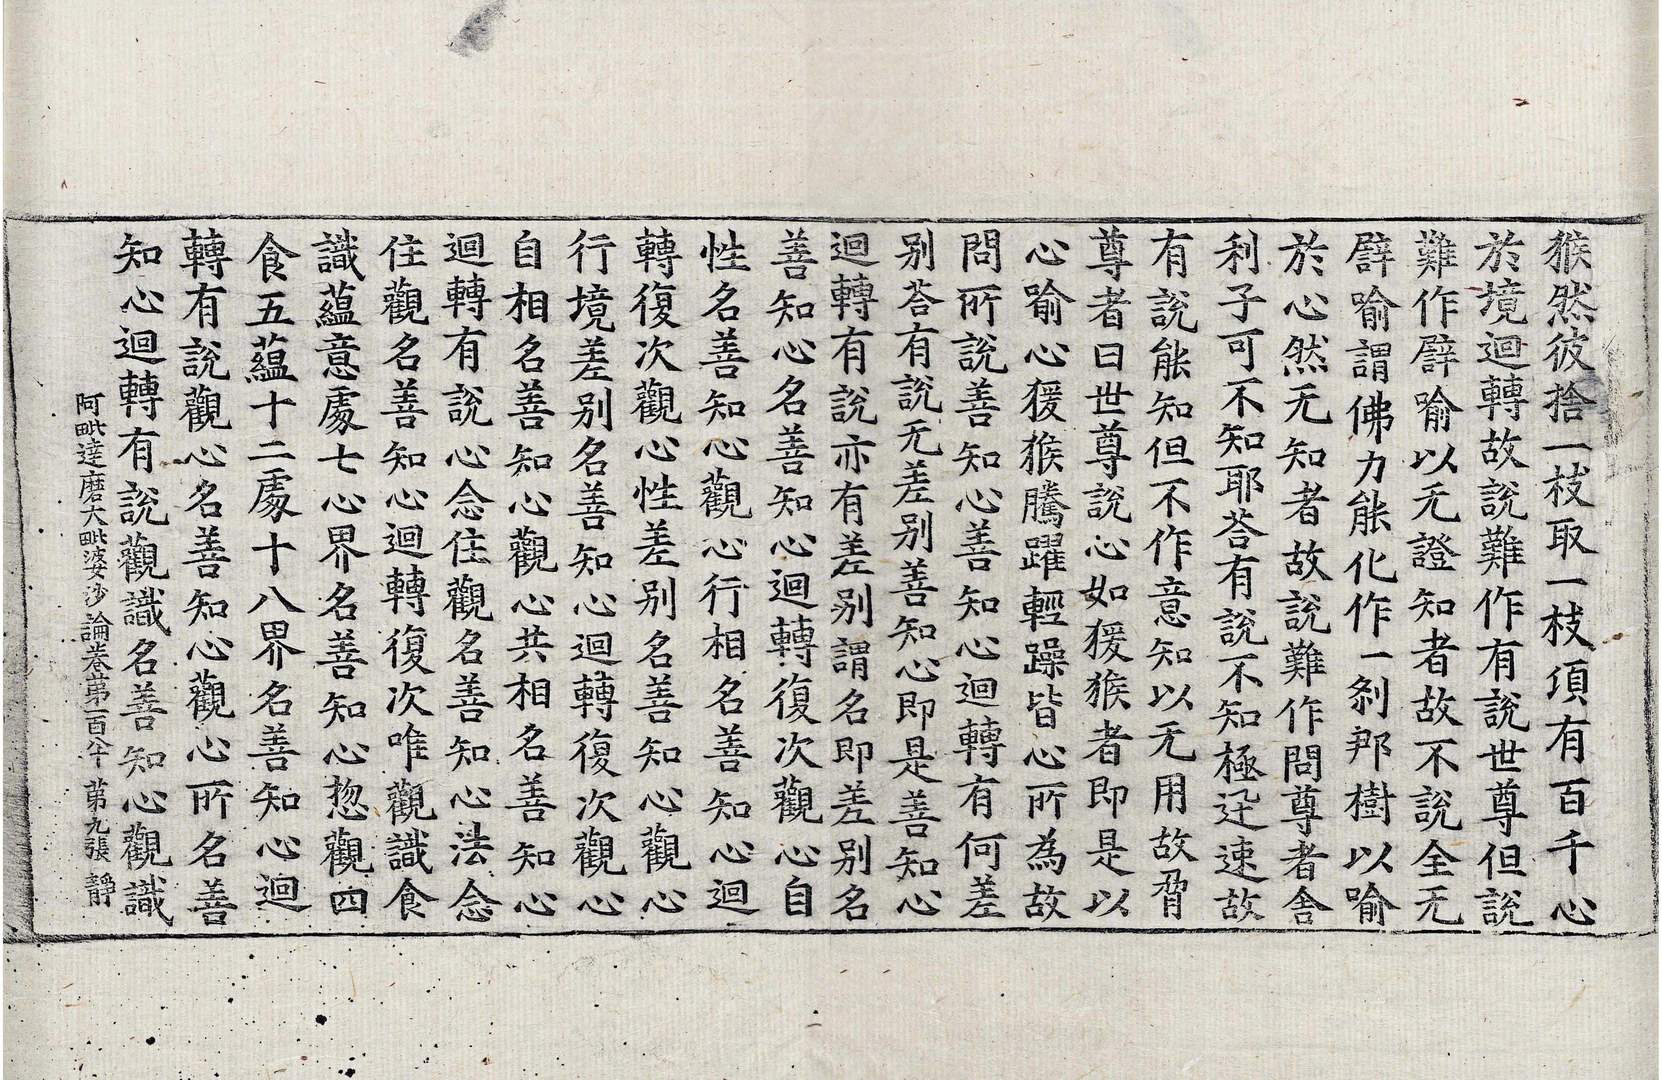 猴然彼捨一枝取一枝項有百千心
於境迴轉故說難作有說世尊但說
難作譬喻以无證知者故不說全无
譬喻謂佛力能化作一剎那樹以喻
於心然无知者故說難作問尊者舍
利子可不知耶荅有說不知極迅速故
有說能知但不作意知以无用故脅
尊者曰世尊說心如猨猴者即是以
心喻心猨猴騰躍輕躁皆心所為故
問所說善知心善知心迴轉有何差
別荅有說无差別善知心即是善知心
迴轉有說亦有差別謂名即差別名
善知心名善知心迴轉復次觀心自
性名善知心觀心行相名善知心迴
轉復次觀心性差別名善知心觀心
行境差別名善知心迴轉復次觀心
自相名善知心觀心共相名善知心
迴轉有說心念住觀名善知心法念
住觀名善知心迴轉復次唯觀識食
識蘊意處七心界名善知心惣觀四
食五蘊十二處十八界名善知心迴
轉有說觀心名善知心觀心所名善
知心迴轉有說觀識名善知心觀識
阿毗達磨大毗婆沙論卷第一百八十 第九張 靜